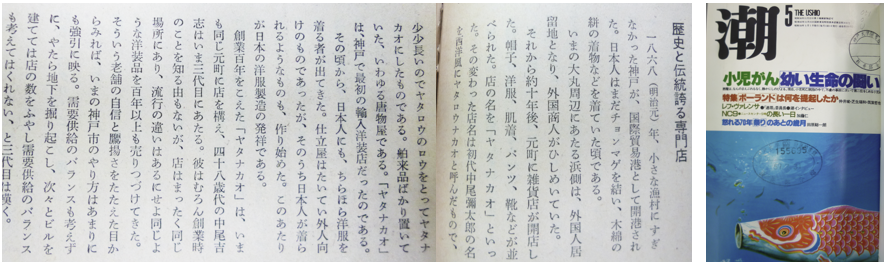 歴史と伝統誇る専門店
一八六八(明治元)年、小さな漁村にすぎ
なかった神戸が、国際貿易港として開港され
た。日本人はまだチョンマゲを結い、木綿の
絣の着物などを着ていた頃である。
いまの大丸周辺にあたる浜側は、外国人居
留地となり、外国商人がひしめいていた。
それから約十年後、元町に雑貨店が開店し
た。帽子、洋服、肌着、パンツ、靴などが並
べられた。店の名を「ヤタナカオ」といっ
た。その変わった店名は初代中尾彌太郎の名
を西洋風にヤタロウナカオと呼んだもので、
少少長いのでヤタロウのロウをとってヤタナ
カオにしたものである。舶来品ばかり置いて
いた、いわゆる唐物屋である。「ヤタナカオ」
は、神戸で最初の輸入洋装店だったのである。
その頃から、日本人にも、ちらほら洋服を
着る者が出てきた。仕立屋はたいてい外人向
けのものであったが、そのうち日本人が着ら
れるようなものも、作り始めた。このあたり
が日本の洋服製造の発祥である。
創業百年をこえた「ヤタナカオ」は、いま
も同じ元町に店を構え、四十八歳代の中尾吉
志はいま三代目にあたる。彼はむろん創業時
のことを知る由もないが、店はまったく同じ
場所にあり、流行の違いはあるにせよ同じよ
うな洋装品を百年以上も売りつづけてきた。
そういう老舗の自信と鷹揚さをたたえた目か
らみれば、いまの神戸市のやり方はあまりに
も強引に映る。需要供給のバランスも考えず
に、やたら地下を掘り起こし、次々とビルを
建てては店の数をふやし需要供給のバランス
も考えてはくれない、と三代目は嘆く。
潮
5
THE USHIO
小児がん 幼い生命の闘い
特集 ポーランドは何を提起したか
NC9 の長い一日